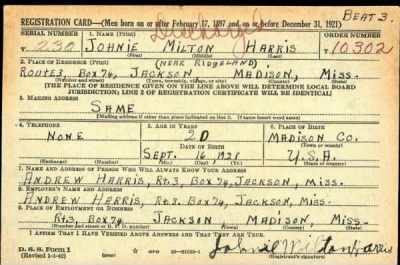 REGISTRATION CARD—(Men born on or after February 17, 1897 and on or before December 31, 1921)
BEAT 3.
SERIAL NUMBER
1. NAME (Print)
ORDER NUMBER
Discharged
T 230
JOHNIE MILTON HARRIS
10302
(First) (Middle) (Last)
2. PLACE OF RESIDENCE (Print)
(NEAR RIDGELAND)
ROUTE 3, BOX 74, JACKSON MADISON, MISS.
(Number and street) (Town, township, village, or city) (County) (State)
[THE PLACE OF RESIDENCE GIVEN ON THE LINE ABOVE WILL DETERMINE LOCAL BOARD
JURISDICTION; LINE 2 OF REGISTRATION CERTIFICATE WILL BE IDENTICAL]
3. MAILING ADDRESS
SAME
[Mailing address if other than place indicated on line 2. If same insert word same]
4. TELEPHONE
5. AGE IN YEARS
6. PLACE OF BIRTH
NONE
20
MADISON CO.
DATE OF BIRTH
(Town or county)
SEPT. 16 1921
U.S.A.
(Exchange) (Number) (Mo.) (Day) (Yr.) (State or country)
7. NAME AND ADDRESS OF PERSON WHO WILL ALWAYS KNOW YOUR ADDRESS
ANDREW HARRIS, RT.3, BOX 74, JACKSON, MISS.
8. EMPLOYER'S NAME AND ADDRESS
ANDREW HARRIS, RT.3, BOX 74, JACKSON, MISS.
9. PLACE OF EMPLOYMENT OR BUSINESS
RT.3, BOX 74 JACKSON MADISON, MISS.
(Number and street or R. F. D. number) (Town) (County) (State)
I AFFIRM THAT I HAVE VERIFIED ABOVE ANSWERS AND THAT THEY ARE TRUE.
D. S. S. Form 1
(Revised 1-1-42)
GPO
Johnie Milton Harris
(Registrant's signature)